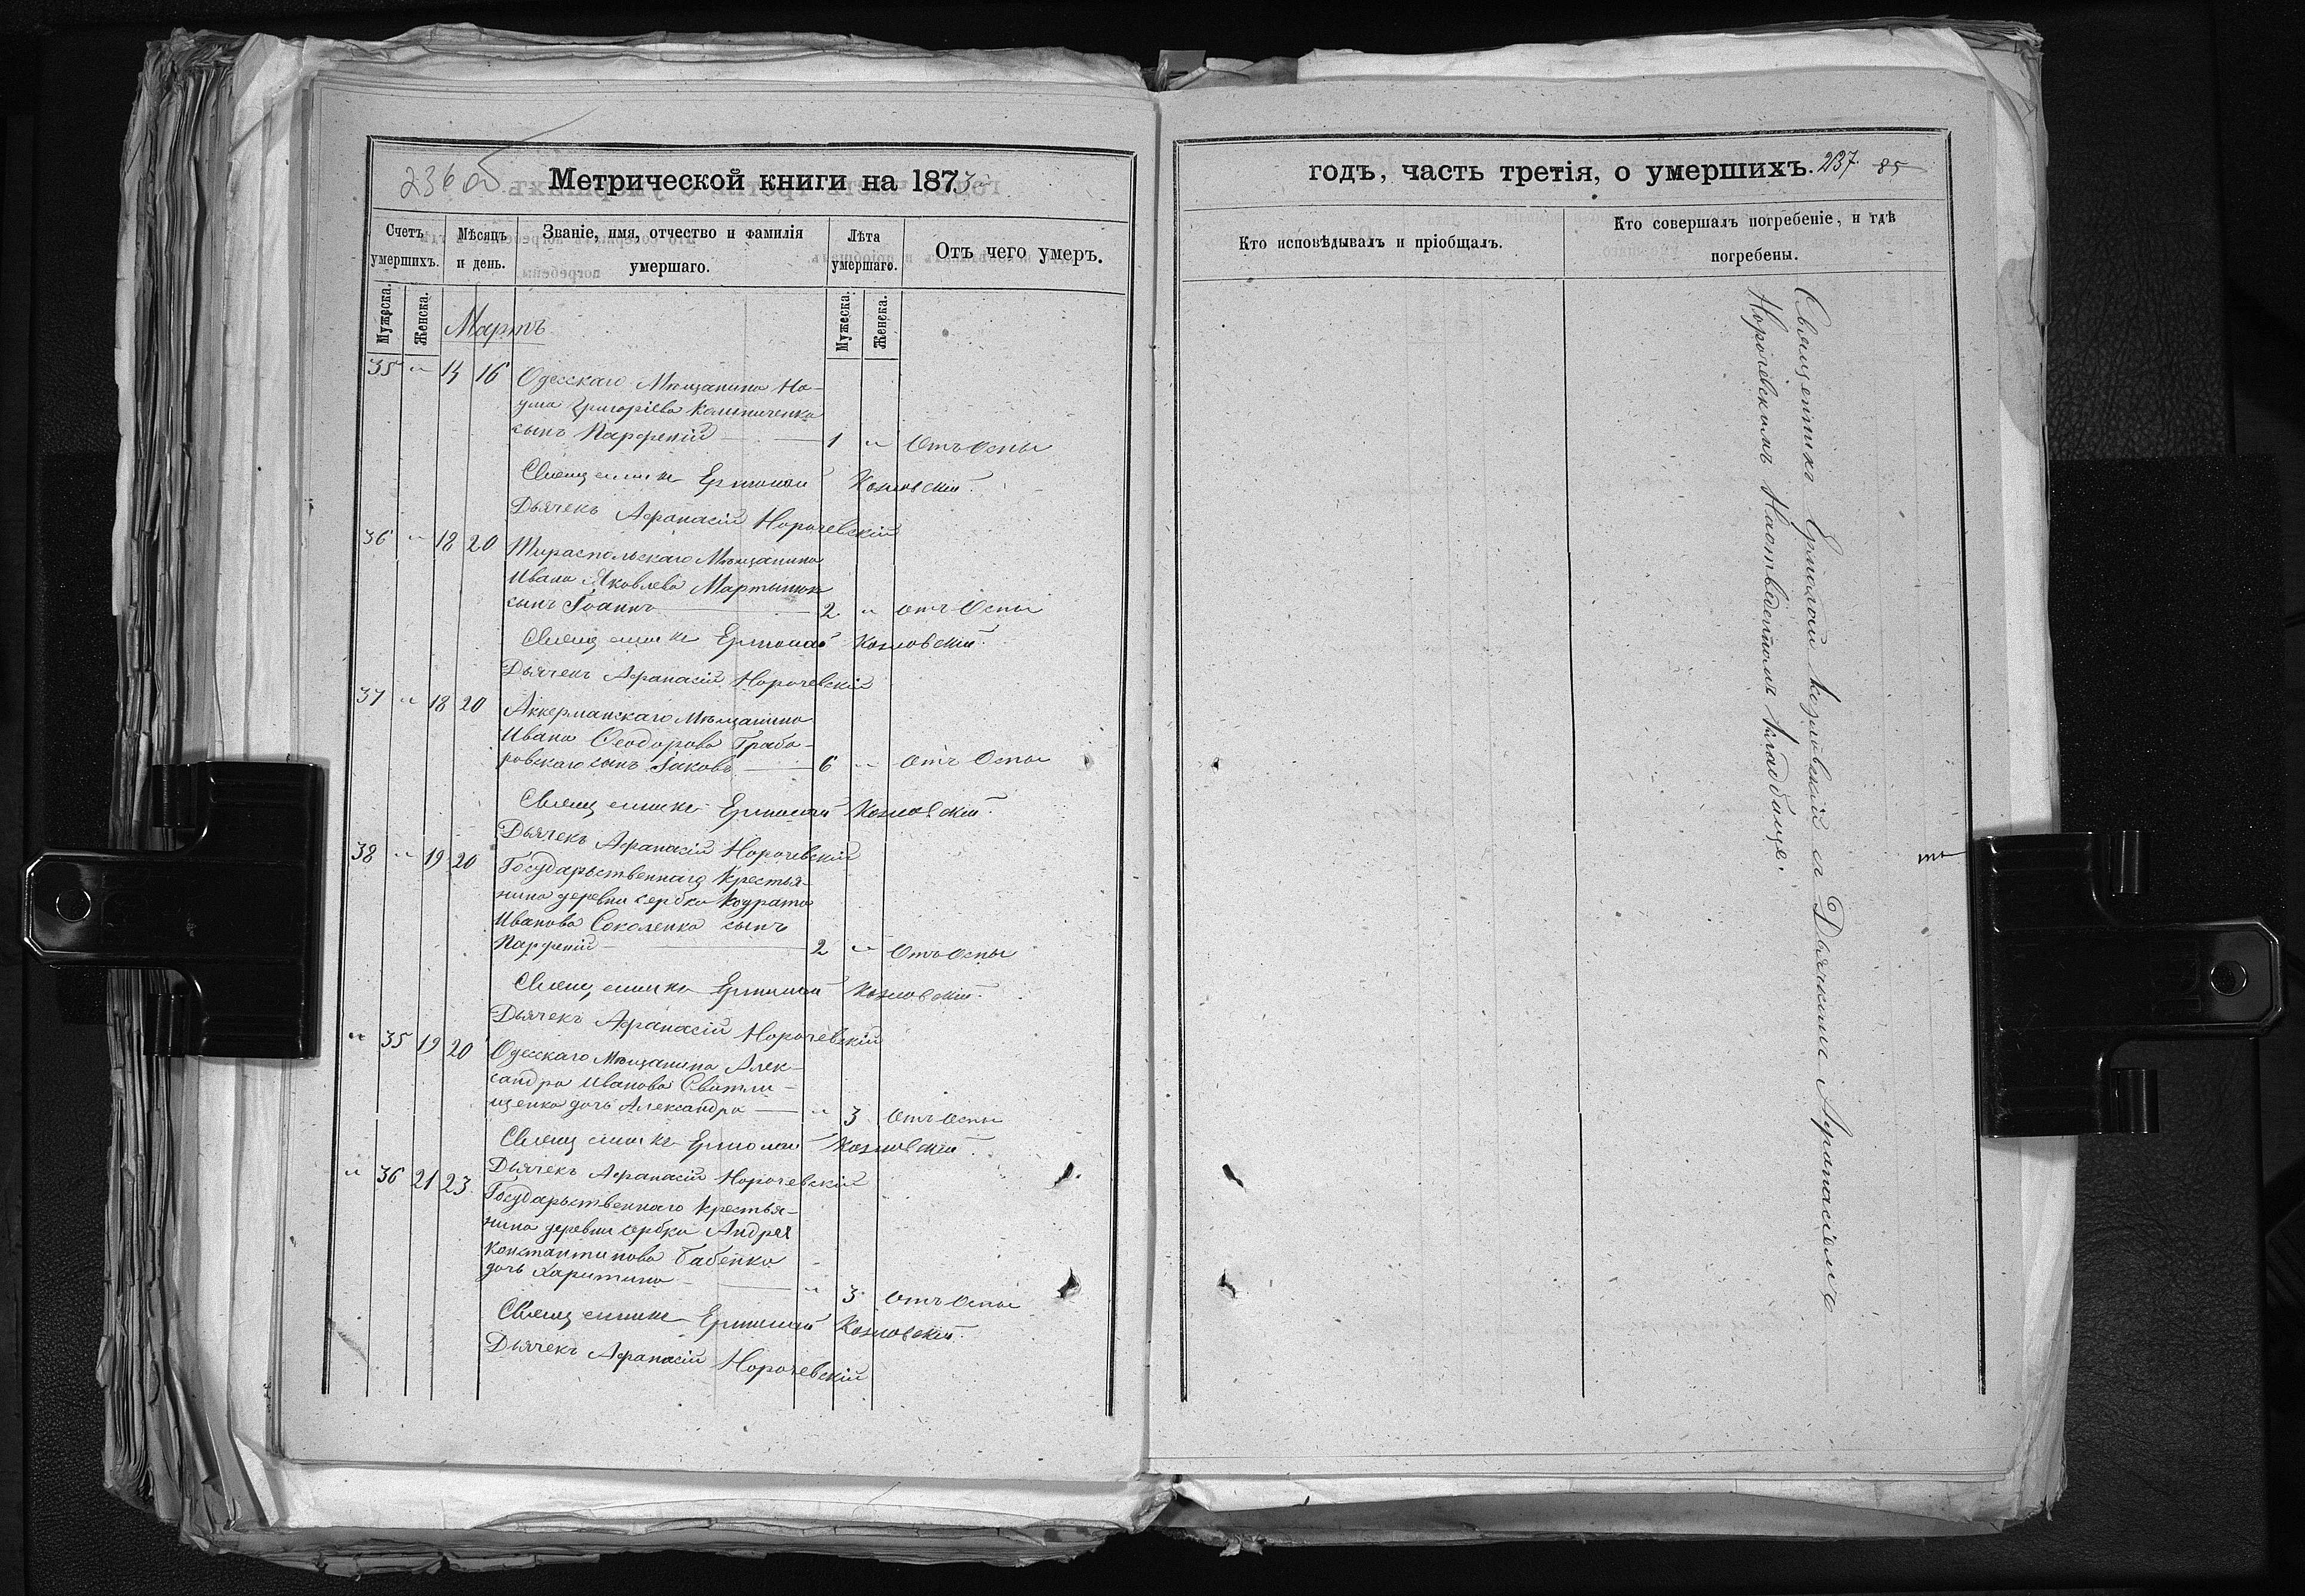 236 об
Метрической книги на 1873
Счетъ умершихъ.
Мѣсяцъ и день.
Званіе, имя, отчество и фамилія умершаго.
Лѣта умершаго.
Отъ чего умеръ.
Мужеска.
Женска.
Мужеска.
Женска.
Мартъ
35 " 14 16 Одесскаго Мѣщанина На-
ума Григоріева Калниченка
сынъ Парфеній — 1 " Отъ Оспы
Священникъ Ермолай Козловскій.
Дьячекъ Афанасій Норочевскій
36 " 18 20 Тираспольскаго Мѣщанина
Ивана Яковлева Мартынюк
сынъ Іоаннъ — 2 " отъ Оспы
Священникъ Ермолай Козловскій.
Дьячекъ Афанасій Норочевскій
37 " 18 20 Аккерманскаго Мѣщанина
Ивана Ѳеодорова Грабо-
ровскаго сынъ Іаковъ — 6 " Отъ Оспы
Священникъ Ермолай Козловскій.
Дьячекъ Афанасій Норочевскій
38 " 19 20 Государственнаго Крестья-
нина деревни Сербки Кодрата
Иванова Соколенка сынъ
Парфеній — 2 " Отъ Оспы
Священникъ Ермолай Козловскій.
Дьячекъ Афанасій Норочевскій
" 35 19 20 Одесскаго Мѣщанина Алек-
сандра Иванова
дочь Александра — " 3 Отъ Оспы
Священникъ Ермолай Козловскій.
Дьячекъ Афанасій Норочевскій
" 36 21 23 Государственнаго Крестья-
нина деревни Сербки Андрея
Константинова Бабенка
дочь Харитина — " 3 Отъ Оспы
Священникъ Ермолай Козловскій.
Дьячекъ Афанасій Норочевскій
годъ, часть третія, о умершихъ.
237. 85
Кто исповѣдывалъ и пріобщалъ.
Кто совершалъ погребеніе, и гдѣ погребены.
Священникъ Ермолай Козловскій съ Дьячкомъ Афанасіемъ
Норочевскимъ На отведенномъ кладбищѣ.